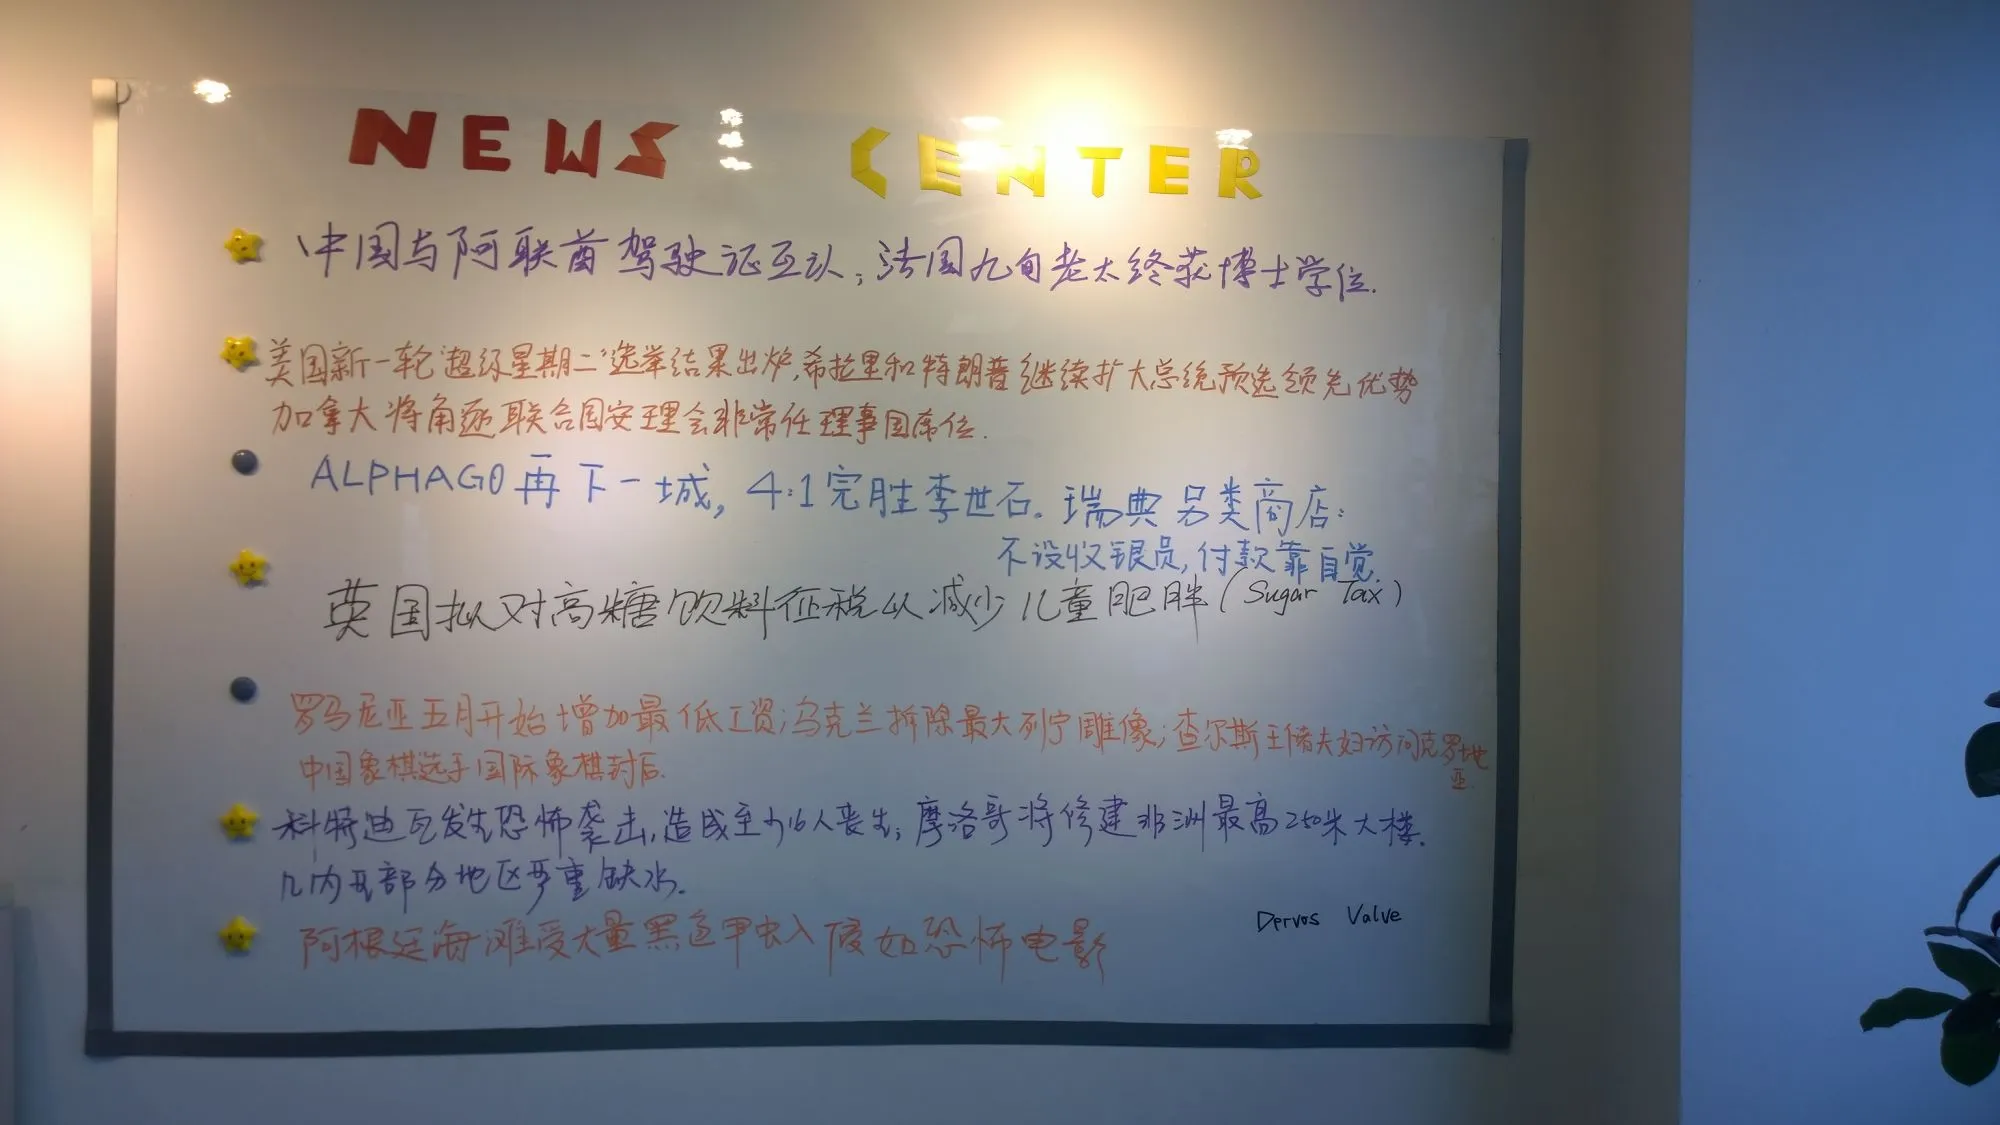 NEWS CENTER
中国与阿联酋驾驶证互认；法国九旬老太终获博士学位.
美国新一轮“超级星期二”选举结果出炉,希拉里和特朗普继续扩大总统预选领先优势
加拿大将角逐联合国安理会非常任理事国席位.
ALPHAGO再下一城, 4:1完胜李世石。瑞典另类商店:
不设收银员,付款靠自觉.
英国拟对高糖饮料征税以减少儿童肥胖(Sugar Tax)
罗马尼亚五月开始增加最低工资;乌克兰拆除最大列宁雕像;查尔斯王储夫妇访问克罗地亚
中国象棋选手国际象棋封后.
科特迪瓦发生恐怖袭击,造成至少16人丧生;摩洛哥将修建非洲最高250米大楼.
几内亚部分地区严重缺水.
Dervos Valve
阿根廷海滩受大量黑色甲虫入侵如恐怖电影